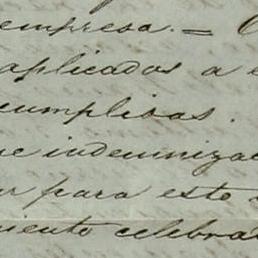 empresa. =
aplicados a
cumplisas.
e indemnizac
para este
miento celebra